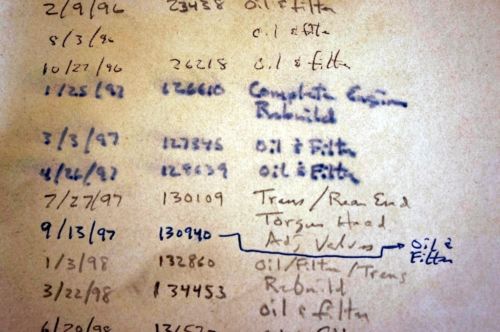 2/9/96 23438 oil & filter
8/3/96 oil & filter
10/27/96 26218 oil & filter
1/25/97 126610 Complete Engine
Rebuild
3/3/97 127345 Oil & Filter
4/26/97 129639 Oil & Filter
7/27/97 130109 Trans/Rear End
Torque Head
9/13/97 130940 Adj Valves Oil &
Filter
1/3/98 132860 Oil/Filter/Trans
Rebuild
3/22/98 134453 oil & filter
6/20/98